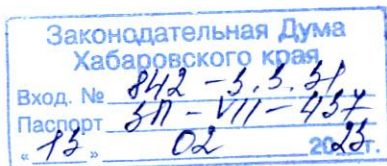 Законодательная Дума
Хабаровского края
Вход. № 842 - 3.3.31
Паспорт ЗП - VII - 437
« 13 » 02 2023 г.